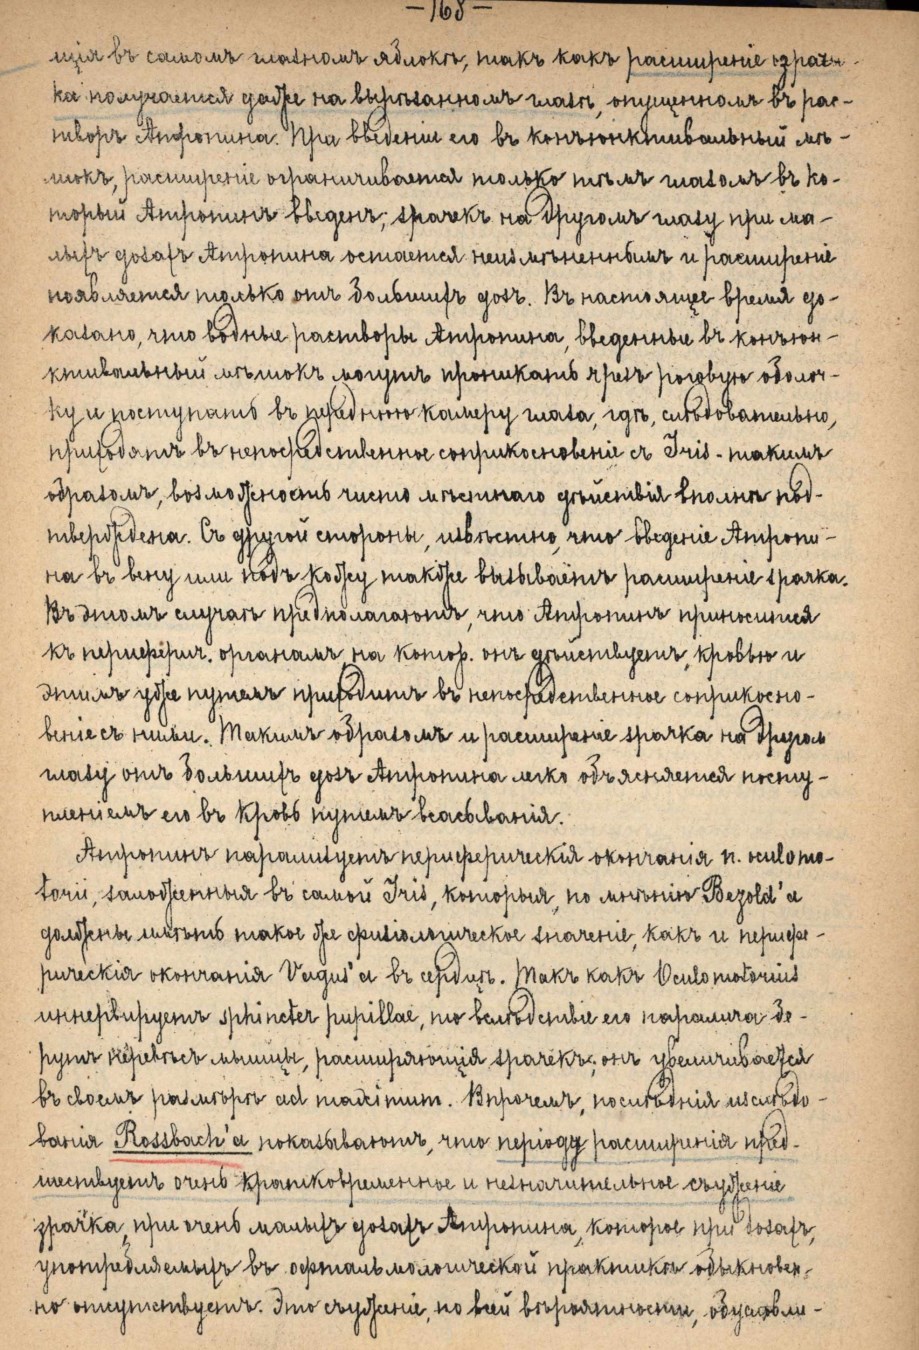 —168—
щія въ самомъ глазномъ яблокѣ, такъ какъ расширеніе зрач-
ка получается даже на вырѣзанномъ глазѣ, опущенномъ въ рас-
творъ Атропина. При введеніи его въ конъюнктивальный мѣ-
шокъ, расширеніе ограничивается только тѣмъ глазомъ въ ко-
торый Атропинъ введенъ; зрачекъ на другомъ глазу при ма-
лыхъ дозахъ Атропина остается неизмѣненнымъ и расширеніе
появляется только отъ большихъ дозъ. Въ настоящее время до-
казано, что водные растворы Атропина, введенные въ конъюн-
ктивальный мѣшокъ могутъ проникать чрезъ роговую оболоч-
ку и поступать въ переднюю камеру глаза, гдѣ, слѣдовательно,
приходятъ въ непосредственное соприкосновеніе съ Iris. такимъ
образомъ, возможность чисто мѣстнаго дѣйствія вполнѣ под-
тверждена. Съ другой стороны, извѣстно, что введеніе Атропи-
на въ вену или подъ кожу также вызываетъ расширеніе зрачка.
Въ этомъ случаѣ предполагаютъ, что Атропинъ приносится
къ периферич. органамъ, на котор. онъ дѣйствуетъ, кровью и
этимъ уже путемъ приходитъ въ непосредственное соприкосно-
веніе съ ними. Такимъ образомъ и расширеніе зрачка на другомъ
глазу отъ большихъ дозъ Атропина легко объясняется посту-
пленіемъ его въ кровь путемъ всасыванія.
Атропинъ парализуетъ периферическія окончанія n. oculomo-
torii, заложенныя въ самой Iris, которыя, по мнѣнію Bezold'а
должны имѣть такое же физіологическое значеніе, какъ и перифе-
рическія окончанія Vagus'а въ сердцѣ. Такъ какъ Oculomotorius
иннервируетъ sphincter pupillae, то вслѣдствіе его паралича бе-
рутъ перевѣсъ мышцы, расширяющія зрачекъ; онъ увеличивается
въ своемъ размѣрѣ ad maximum. Впрочемъ, послѣднія изслѣдо-
ванія Rossbach'а показываютъ, что періоду расширенія пред-
шествуетъ очень кратковременное и незначительное съуженіе
зрачка, при очень малыхъ дозахъ Атропина, которое при дозахъ,
употребляемыхъ въ офтальмологической практикѣ обыкновен-
но отсутствуетъ. Это съуженіе, по всей вѣроятности, обусловли-